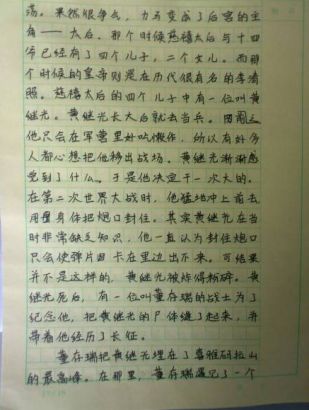 荡。果然很争气,力马变成了后宫的主
角——太后。那个时候慈禧太后与十四
爷已经有了四个儿子,二个女儿。而那
个时候的皇帝则是在历代很有名的李清
照。慈禧太后的四个儿子中有一位叫黄
继光。黄继光长大后就去当兵。因
他只会在军营里好吃懒作,所以有好多
人都心想把他移出战场。黄继光渐渐感
受到了什么。于是他决定干一次大的。
在第二次世界大战时,他猛地冲上前去
用身体把炮口封住。其实黄继光在当
时非常缺乏知识,他一直认为封住炮口
只会使弹片卡在里边出不来。可结果
并不是这样的,黄继光被炸得粉碎。黄
继光死后,有一位叫董存瑞的战士为了
纪念他,把黄继光的尸体缝了起来,并
带着他经历了长征。
董存瑞把黄继光埋在了喜雅玛拉山
的最高峰。在那里,董存瑞遇见了一个